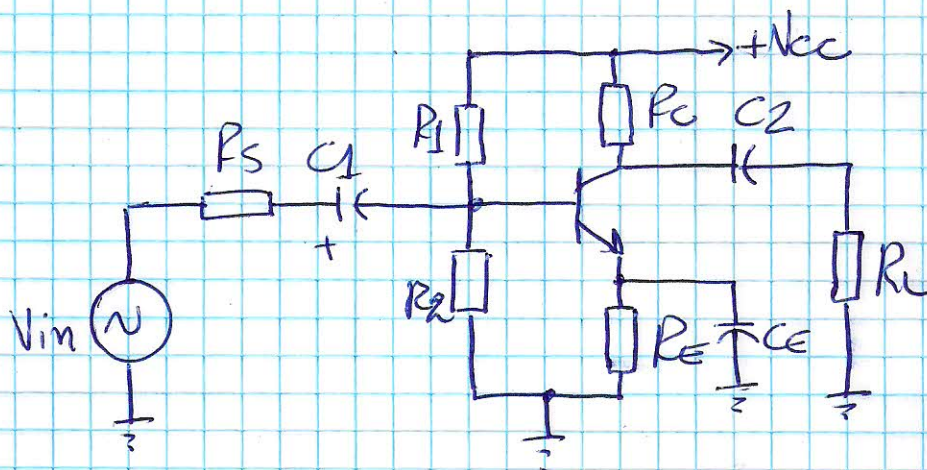 +Vcc
R1
Rc
C2
Rs
C1
+
R2
RL
Vin
RE
CE